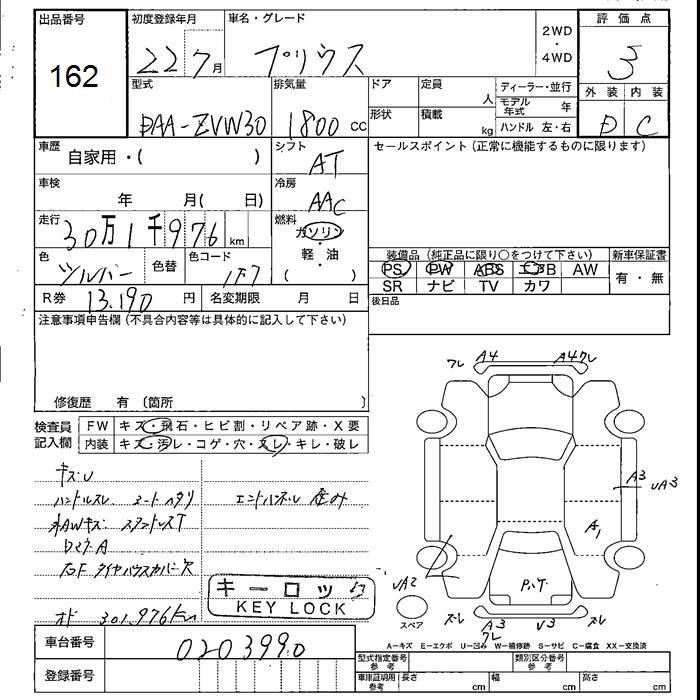 出品番号
162
初度登録年月
22 7月
車名・グレード
プリウス
2WD
・
4WD
評価点
3
外装 内装
D C
型式
DAA-ZVW30
排気量
1800 cc
ドア
定員
人
形状
積載
kg
ディーラー・並行
モデル年式 年
ハンドル 左・右
車歴
自家用・( )
シフト
AT
セールスポイント(正常に機能するものに限ります)
車検
年 月( 日)
冷房
AAC
走行
30万1千976 km
燃料
ガソリン
・
軽・油
( )
色
シルバー
色替
色コード
1F7
装備品(純正品に限り○をつけて下さい)
新車保証書
PS PW ABS エアB AW
有・無
SR ナビ TV カワ
R券
13,190 円
名変期限 月 日
後日品
注意事項申告欄(不具合内容等は具体的に記入して下さい)
修復歴 有〔箇所 〕
検査員記入欄
FW キズ・飛石・ヒビ割・リペア跡・X要
内装 キズ・汚レ・コゲ・穴・スレ・キレ・破レ
キズU
ハンドルスレ シートヘタリ
エンドパネル 歪み
AWキズ
オド 301,976km
キーロック
KEY LOCK
フレ A4 A4フレ
A3 UA3
A1
UA2
スペア
ズレ A3 V3 ズレ
フレ
A-キズ E-エクボ U-凹み W-補修跡 S-サビ C-腐食 XX-交換済
車台番号
0203990
登録番号
型式指定番号参考
類別区分番号参考
車庫証明用参考
長さ cm
幅 cm
高さ cm